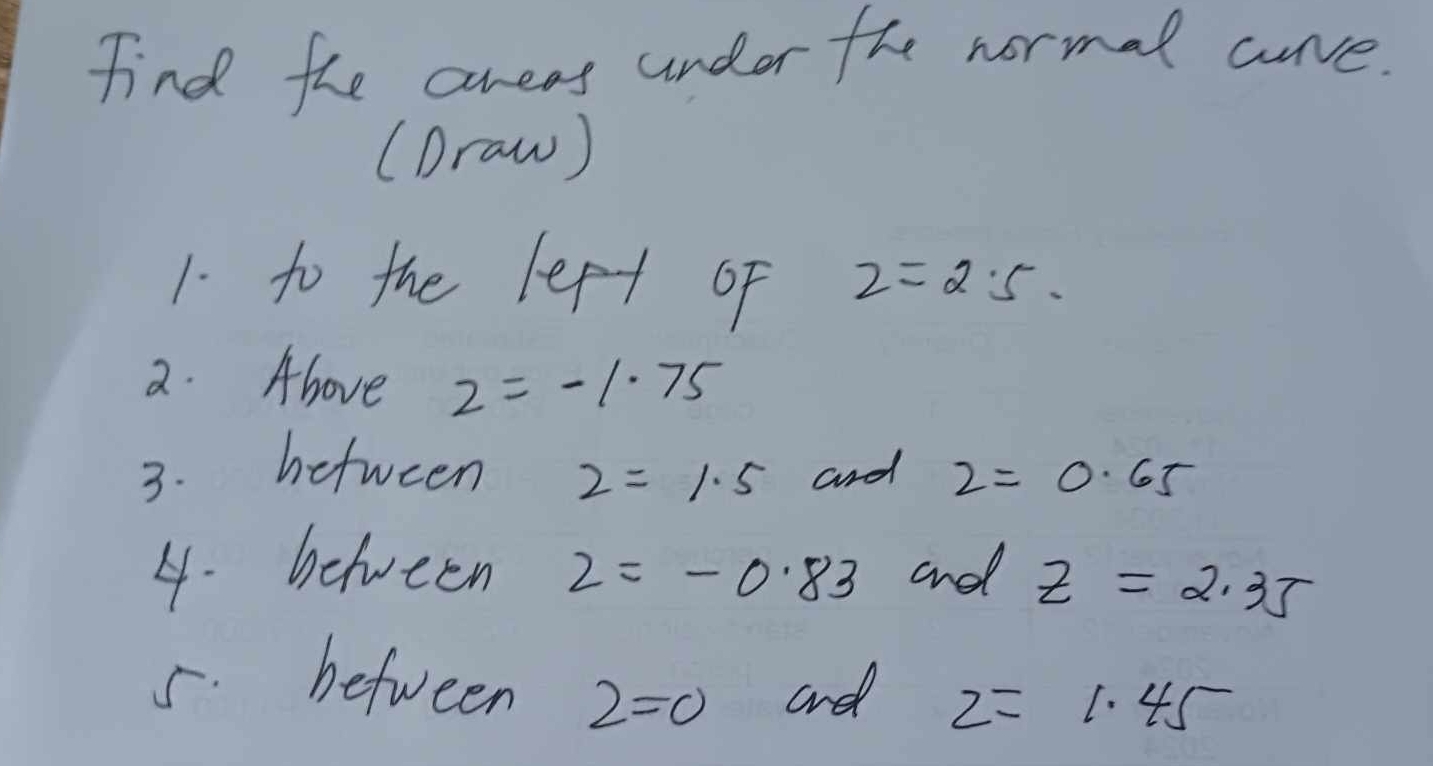 Find the areas under the normal curve.
(Draw)
1. to the left of z=2.5.
2. Above z=-1.75
3. between z=1.5 and z=0.65
4. between z=-0.83 and z=2.35
5. between z=0 and z=1.45